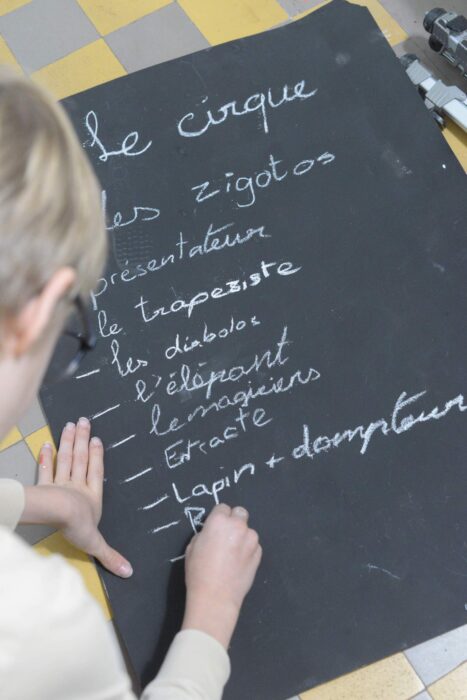 Le cirque
les zigotos
présentateur
le trapesiste
- les diabolos
- l'élépant
- le magiciens
- Entracte
- Lapin + dompteur
-
-